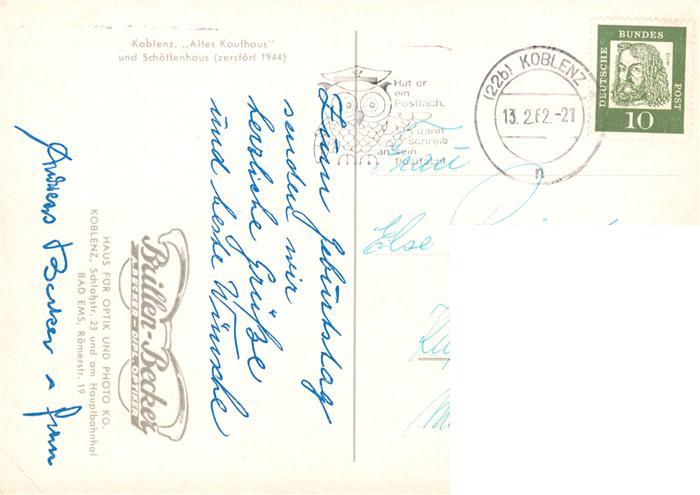 Koblenz, „Altes Kaufhaus"
und Schöffenhaus (zerstört 1944)
Zum Geburtstag
senden wir
herzliche Grüße
und beste Wünsche
Brillen-Becker
BECKER · DIPL.-OPTIKER
HAUS FÜR OPTIK UND PHOTO KG.
KOBLENZ, Schloßstr. 23 und am Hauptbahnhof
BAD EMS, Römerstr. 19
Andreas Becker
Hat er
ein
Postfach,
dann
schreib
an sein
Postfach!
(22b) KOBLENZ
13.2.62.-21
n
DEUTSCHE BUNDESPOST
Dürer
10
Frau
Else